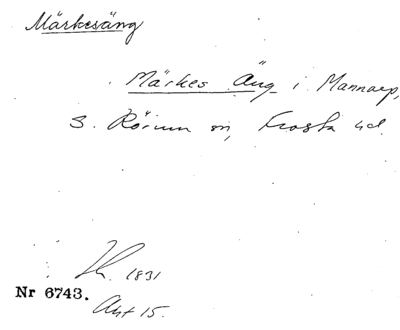 Märkesäng
Märkes Äng i Mannarp,
S. Rörum sn, Frosta hd.
1831
Nr 6743.
Akt 15.